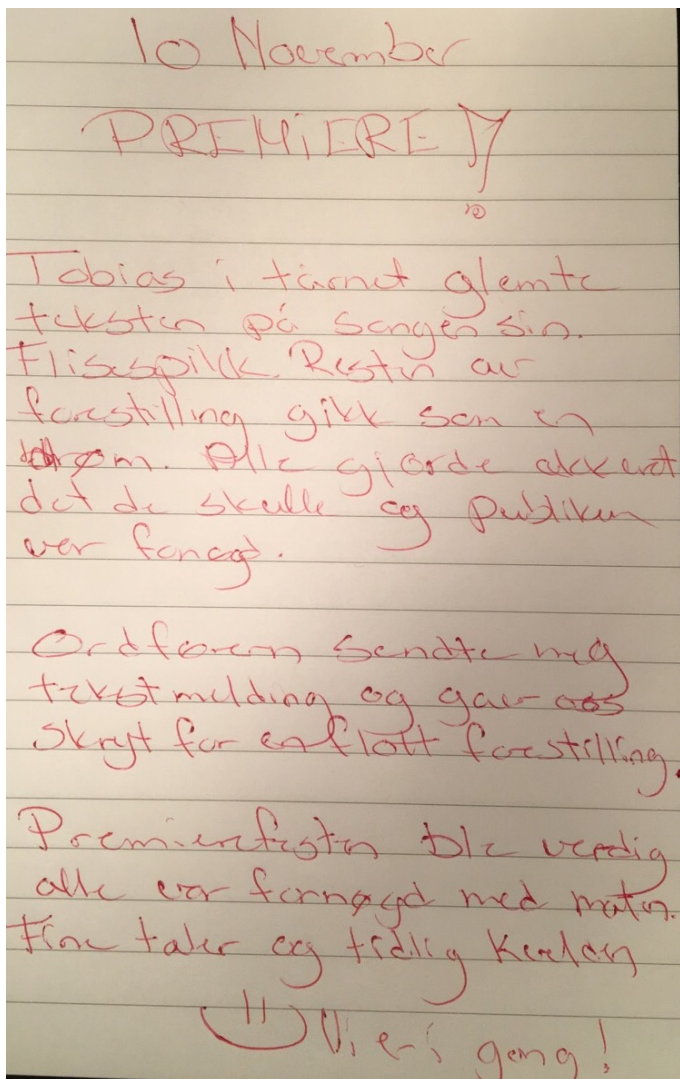 10 November
PREMIERE!
Tobias i tårnet glemte
teksten på sangen sin.
Flisespikk. Resten av
forestilling gikk som en
drøm. Alle gjorde akkurat
det de skulle og publikum
var fornøgd.
Ordføreren sendte meg
tekstmelding og gav oss
skryt for en flott forestilling.
Premierefesten ble verdig
alle var fornøgd med maten.
Fine taler og tidlig kvelden
Vi er i gang!